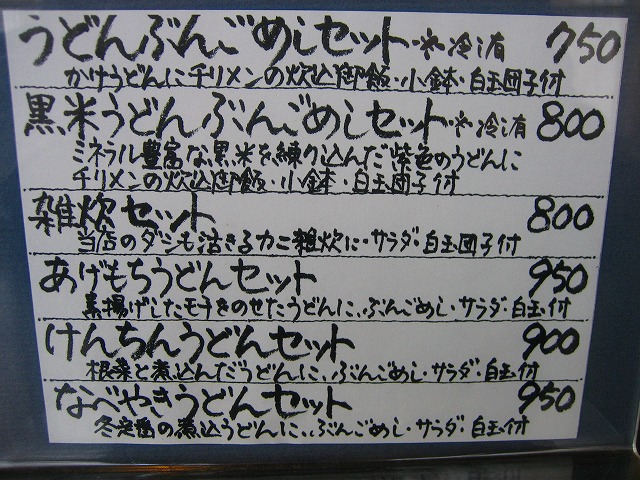 うどんぶんごめしセット ※冷し有 750
かけうどんにチリメンの炊込御飯・小鉢・白玉団子付
黒米うどんぶんごめしセット ※冷し有 800
ミネラル豊富な黒米を練り込んだ紫色のうどんに
チリメンの炊込御飯・小鉢・白玉団子付
雑炊セット 800
当店のダシも活きるカニ雑炊に・サラダ・白玉団子付
あげもちうどんセット 950
素揚げしたモチをのせたうどんに、ぶんごめし・サラダ・白玉付
けんちんうどんセット 900
根菜と煮込んだうどんに、ぶんごめし・サラダ・白玉付
なべやきうどんセット 950
冬定番の煮込うどんに、ぶんごめし・サラダ・白玉付